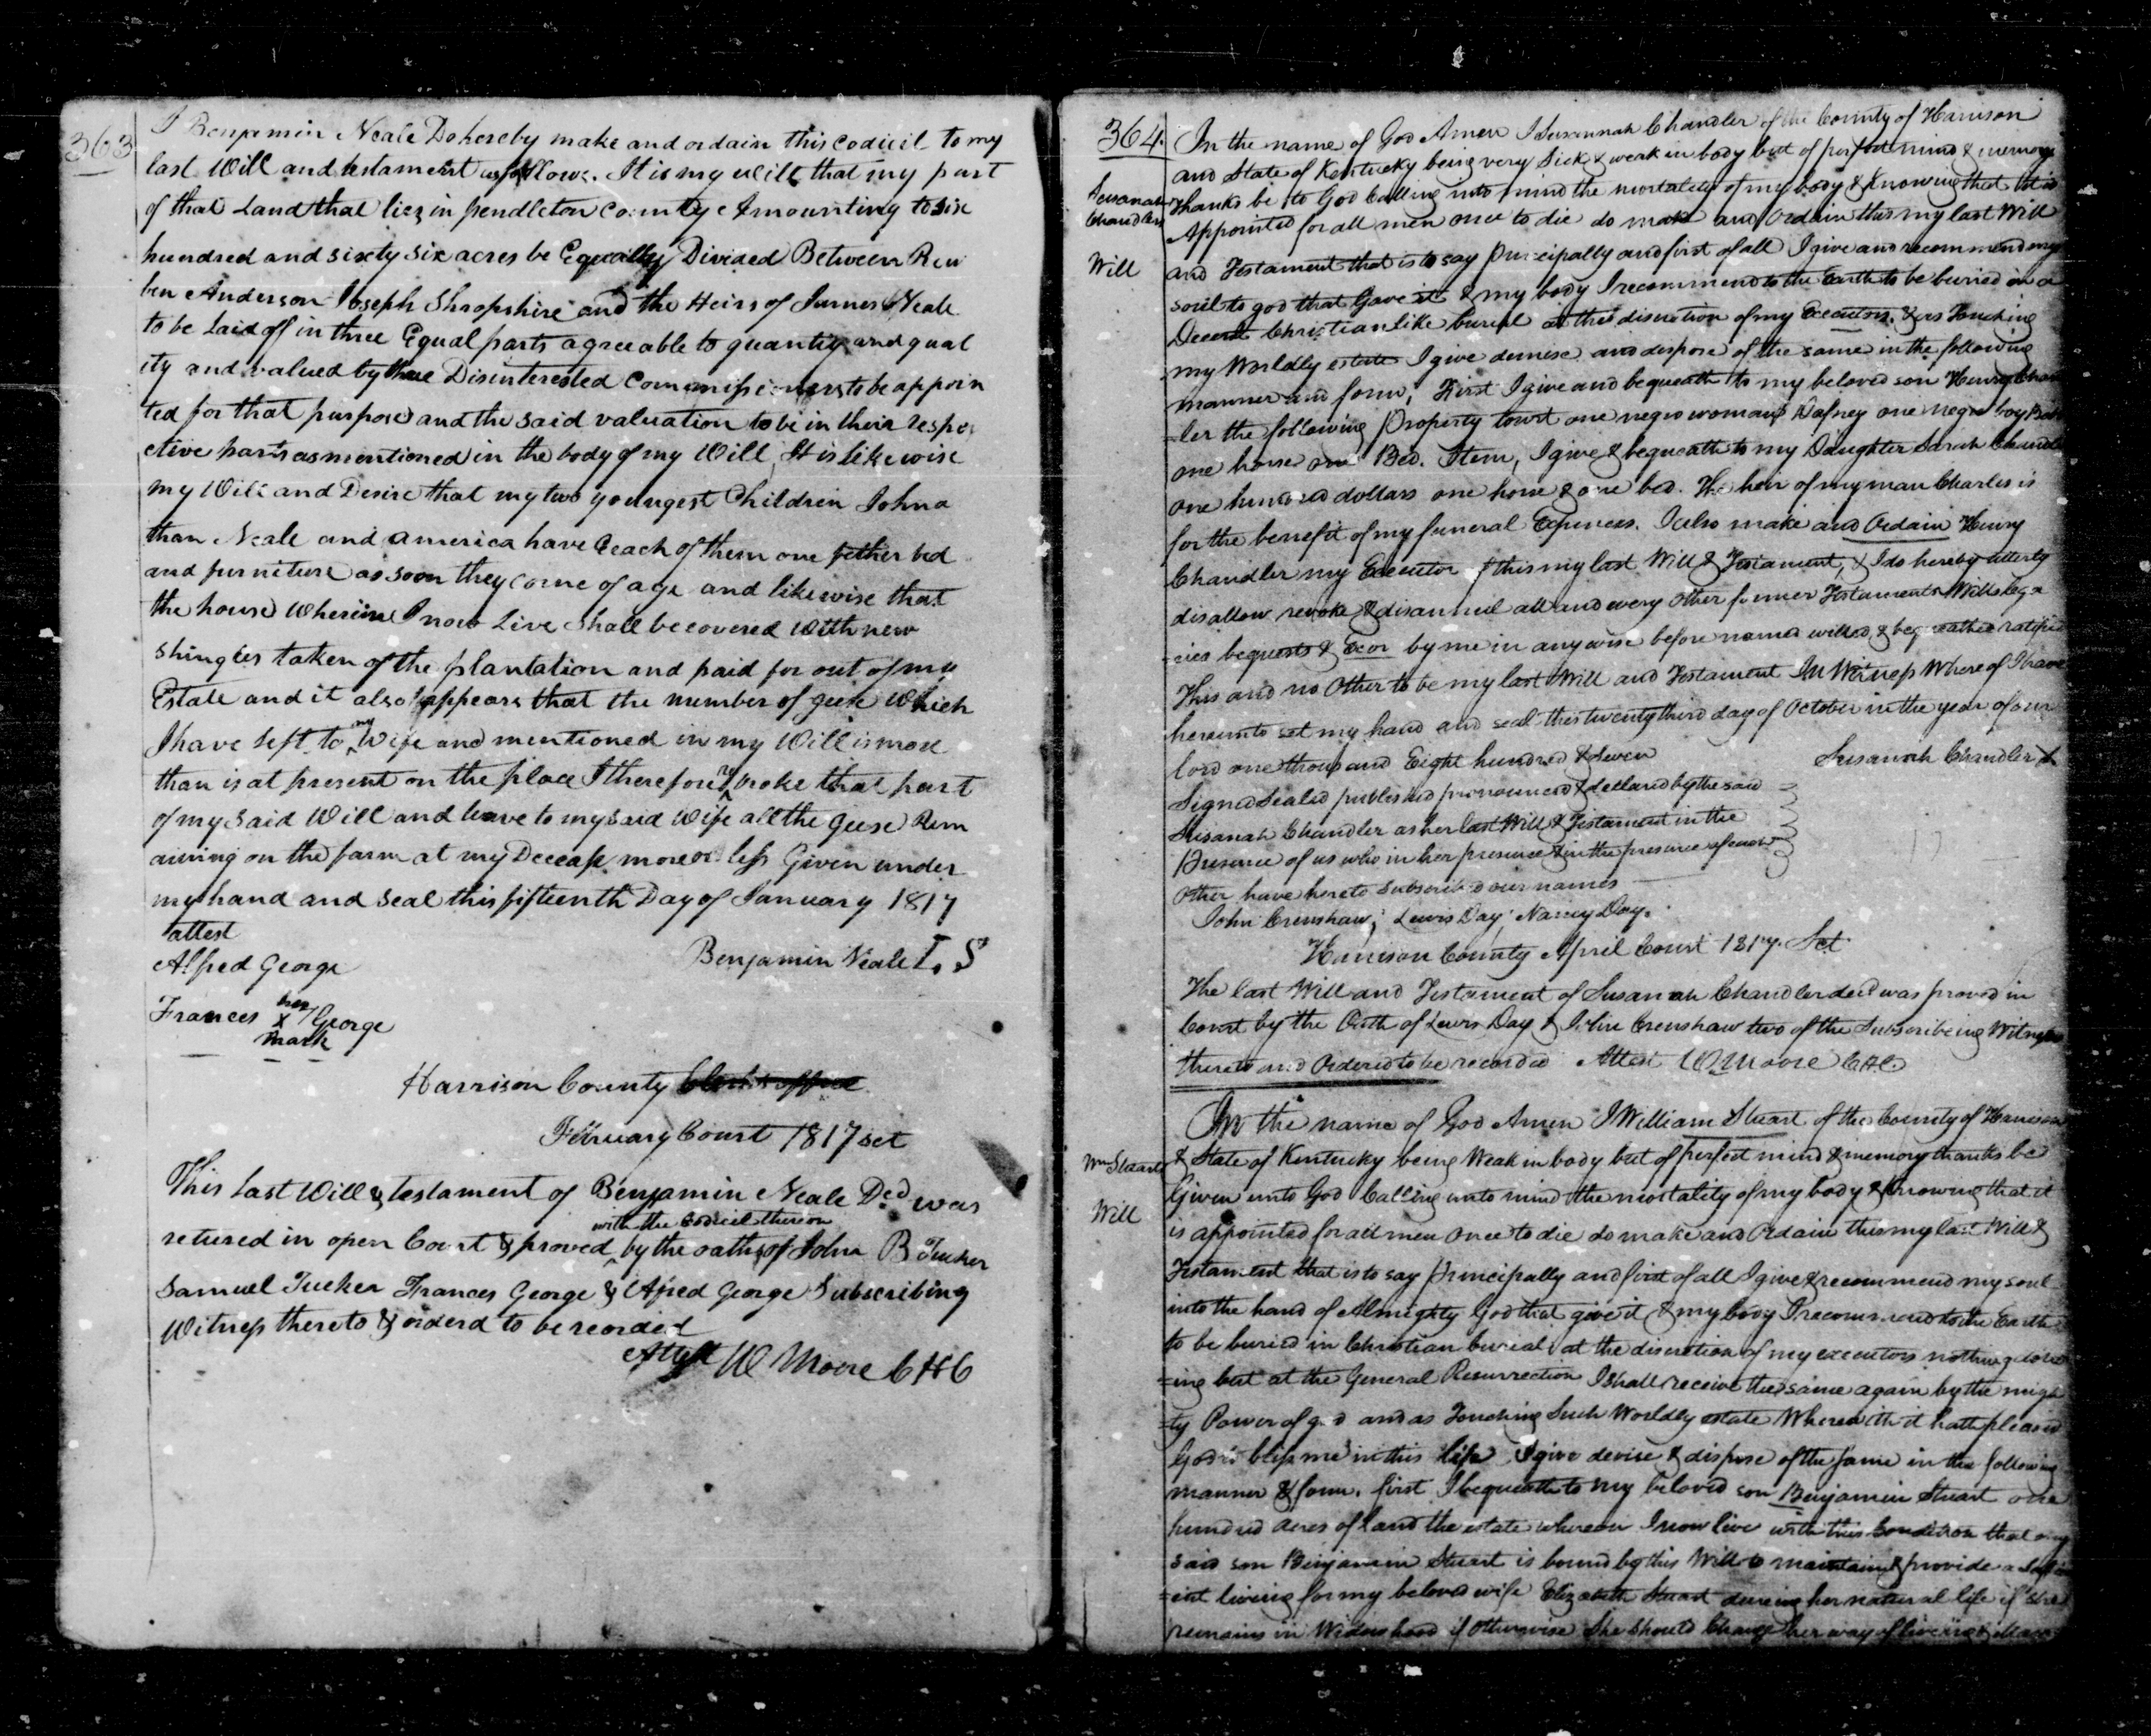 363
I Benjamin Neale Do hereby make and ordain this codicil to my
last Will and testament as follows. It is my will that my part
of that Land that lies in pendleton County Amounting to six
hundred and sixty six acres be Equally Divided Between Reu
ben Anderson Joseph Shropshire and the Heirs of James Neale
to be Laid off in three Equal parts agreeable to quantity and qual
ity and valued by three Disinterested Commissioners to be appoin
ted for that purpose and the said valuation to be in their respe
ctive parts as mentioned in the body of my Will, It is Likewise
my Will and Desire that my two youngest Children Johna
than Neale and america have Each of them one fether bed
and furniture as soon they come of age and likewise that
the house Wherein I now Live Shall be covered With new
shingles taken of the plantation and paid for out of my
Estate and it also appears that the number of geese Which
I have left to my Wife and mentioned in my Will is more
than is at present on the place I therefore revoke that part
of my said Will and leave to my said Wife all the Geese Rem
aining on the farm at my Decease more or less Given under
my hand and seal this fifteenth Day of January 1817
attest
Alfred George
Benjamin Neale L. S
Frances her X mark George
Harrison County Clerk's office
February Court 1817 sct
This Last Will & testament of Benjamin Neale Decd was
retured in open Court & proved with the Codicil thereon by the oaths of John B Tucker
Samuel Tucker Frances George & Alfred George Subscribing
Witness thereto & orderd to be recorded
Attest W Moore C H C
364.
Susanah
Chandlers
Will
In the name of God Amen I Susannah Chandler of the County of Harrison
and State of Kentucky being very Sick & weak in body but of perfect mind & memory
thanks be to God Calling into mind the mortality of my body & Knowing that it is
Appointed for all men once to die do make and Ordain this my last Will
and Testament that is to say Principally and first of all I give and recommend my
soul to god that Gave it & my body I recommend to the Earth to be buried in a
Decent Christian like burial at the discretion of my Executors. & as Touching
my Worldly estate I give demise and dispose of the same in the following
manner and form, First I give and bequeath to my beloved son Henry Chan
-ler the following Property towit one negro woman Dafney one negro boy
one horse one Bed. Item, I give & bequeath to my Daughter Sarah Chandler
one hundred dollars one horse & one bed. The heir of my man Charles is
for the benefit of my funeral Expences. I also make and Ordain Henry
Chandler my Executor of this my last Will & Testament, & I do hereby utterly
disallow revoke & disannul all and every Other former Testaments Wills lega
-cies bequests & Exor by me in any wise before named willed & bequeathed ratified
This and no Other to be my last Will and Testament In Witness Where of I have
hereunto set my hand and seal this twenty third day of October in the year of our
lord one thousand Eight hundred & Seven
Susanah Chandler X
Signed Sealed published pronounced & declared by the said
Susanah Chandler as her last Will & Testament in the
Presence of us who in her presence & in the presence of each
Other have hereto subscribed our names
John Crenshaw; Lewis Day; Nancy Day.
Harrison County April Court 1817. Sct
The last Will and Testament of Susanah Chandler decd was proved in
Court by the Oath of Lewis Day & John Crenshaw two of the Subscribeing Witnesses
thereto and Ordered to be recorded Attest W Moore C.H.C.
Wm Stuarts
Will
In the name of God Amen I William Stuart of the County of Harrison
& State of Kentucky being Weak in body but of perfect mind & memory thanks be
Given unto God Calling unto mind the mortality of my body & Knowing that it
is appointed for all men Once to die do make and Ordain this my last Will &
Testament that is to say Principally and first of all I give & recommend my soul
into the hand of Almighty God that give it & my body I recommend to the Earth
to be buried in Christian burial at the discretion of my executors nothing
-ing but at the General Resurrection I shall receive the same again by the migh
-ty Power of god and as Touching Such Worldly estate Wherewith it hath pleased
God to bless me in this life I give devise & dispose of the same in the following
manner & form. first I bequeath to my beloved son Benjamin Stuart one
hundred acres of land the estate whereon I now live with this Condition that my
said son Benjamin Stuart is bound by this Will to maintain & provide a
-ent living for my beloved wife Elizabeth Stuart dureing her natural life if she
remains in Widowhood if otherwise She Should Change her way of liveing